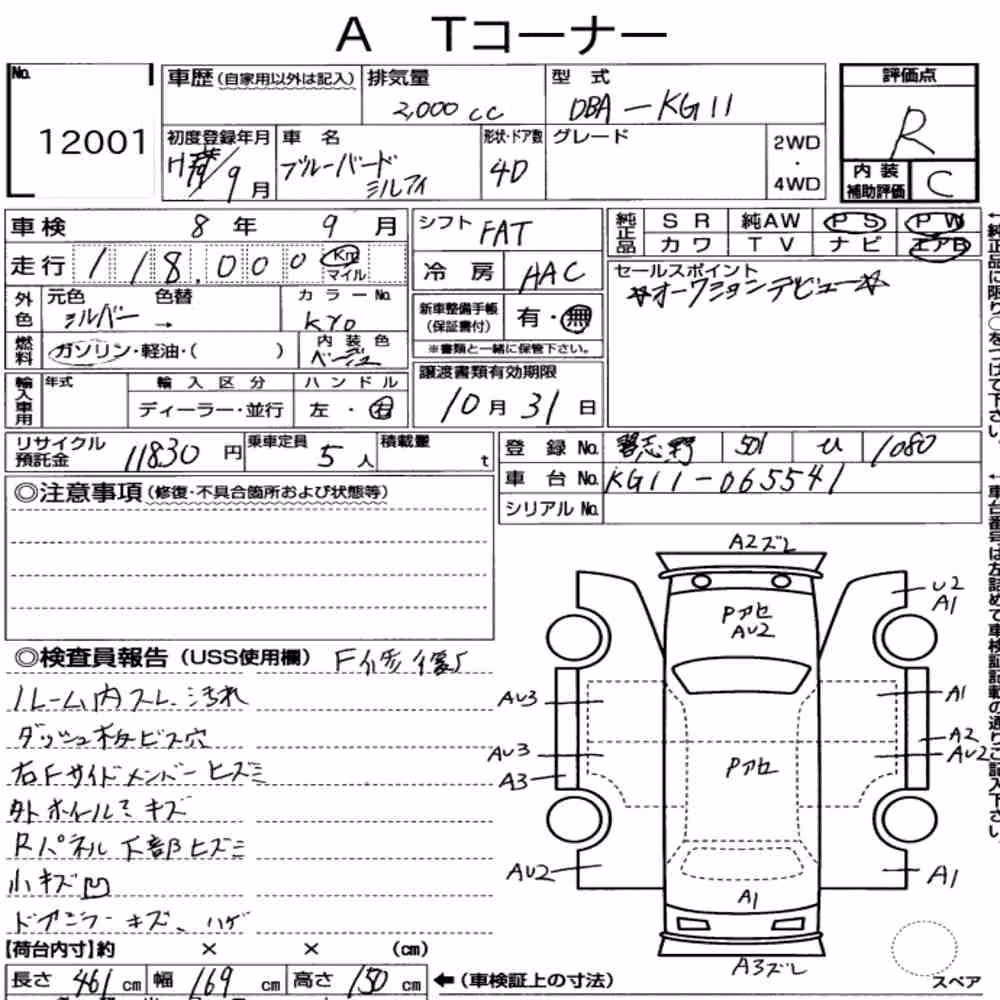 A Tコーナー
No. 12001
車歴(自家用以外は記入) 排気量 2,000cc 型式 DBA-KG11 評価点 R
初度登録年月 9月 車名 ブルーバード シルフィ 形状・ドア数 4D グレード 2WD・4WD 内装補助評価 C
車検 8年 9月 シフト FAT 純正品 SR 純AW PS PW
カワ TV ナビ エアB
走行 118,000 Km マイル 冷房 AAC セールスポイント
☆オークションデビュー☆
外色 元色 シルバー 色替 → カラーNo. KY0 新車整備手帳(保証書付) 有・無
燃料 ガソリン・軽油・( ) 内装色 ベージュ ※書類と一緒に保管下さい。
輸入車用 年式 輸入区分 ディーラー・並行 ハンドル 左・右 譲渡書類有効期限 10月31日
リサイクル預託金 11830円 乗車定員 5人 積載量 t 登録No. 習志野 501 ひ 1080
車台No. KG11-065541
シリアルNo.
◎注意事項(修復・不具合箇所および状態等)
◎検査員報告(USS使用欄) F修復
ルーム内スレ、汚れ
ダッシュ板ビス穴
右Fサイドメンバーヒズミ
外ホイールミキズ
Rパネル下部ヒズミ
小キズ凹
ドアミラーキズ、ハゲ
【荷台内寸】約 × × (cm)
長さ 461cm 幅 169cm 高さ 150cm ←(車検証上の寸法)
A2ズレ
Pアセ
AU2
U2
A1
AU3
A1
AU3
A3
Pアセ
A2
AU2
AU2
A1
A1
A3ズレ
スペア
←純正品に限り○をつけて下さい。
←車台番号は左詰めで車検証記載の通りご記入下さい。